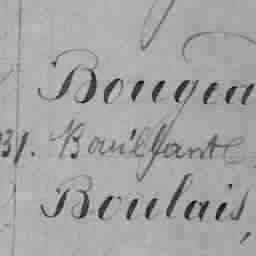 Bougea
31. Bouillante
Boulais,